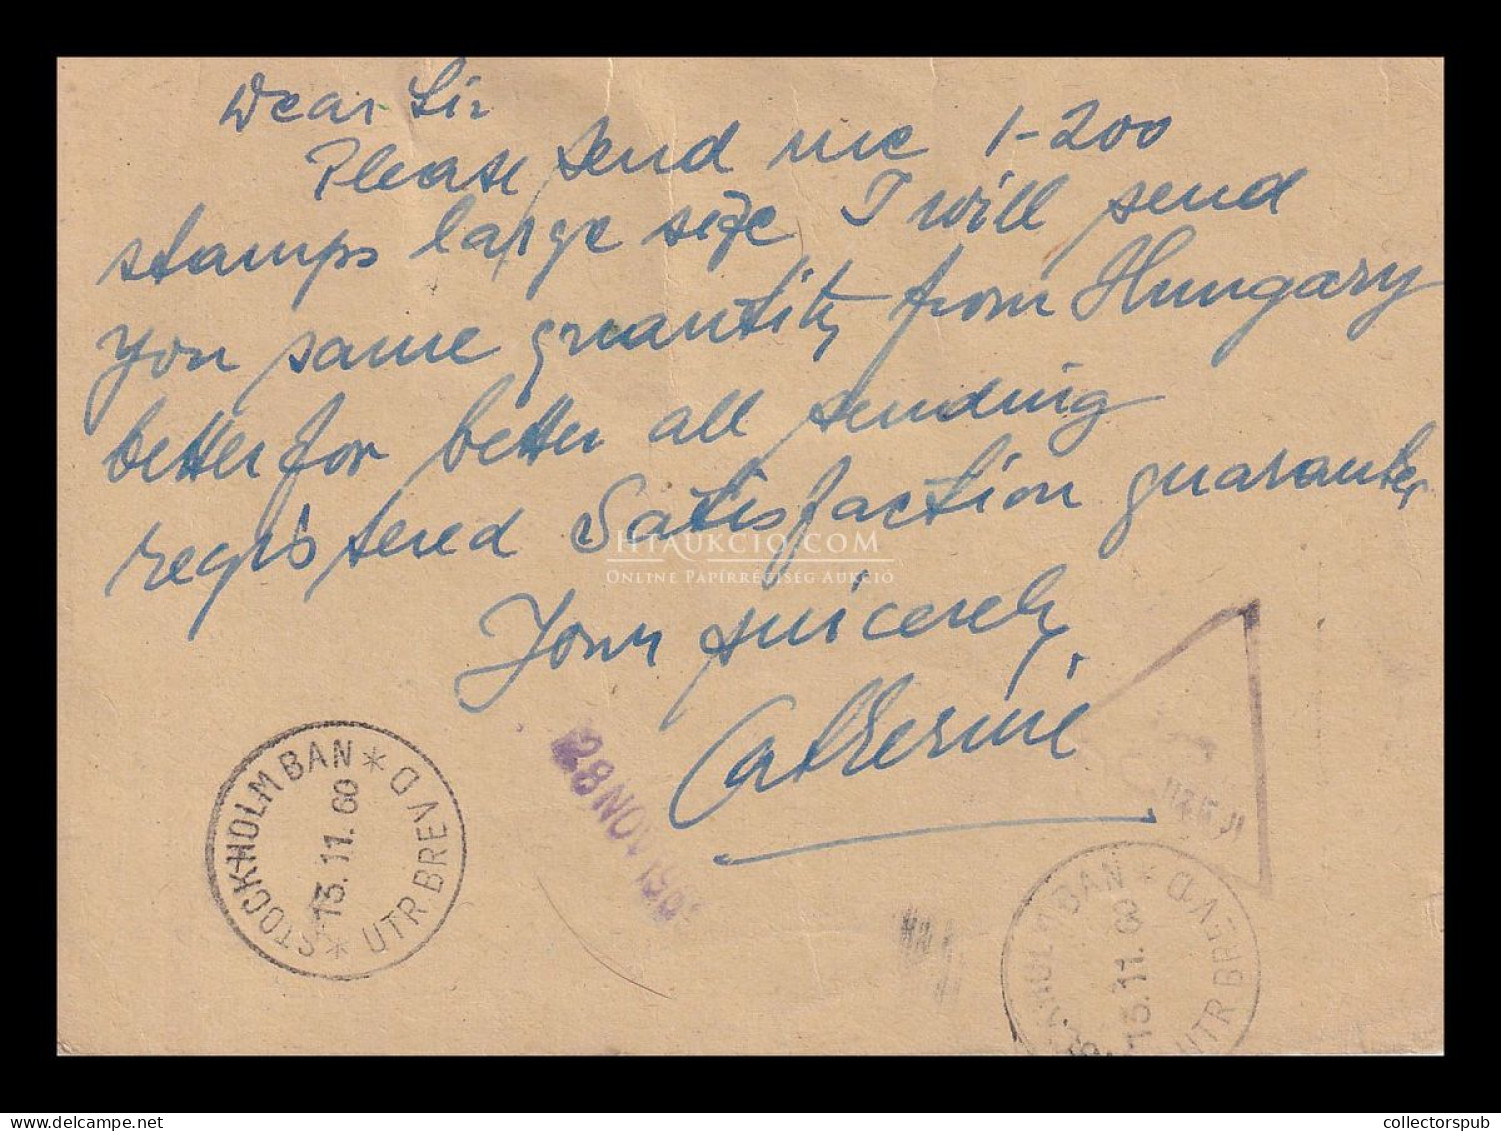 Dear Sir
Please send me 1-200
stamps large size I will send
you same quantity from Hungary
better for better all sending
registered Satisfaction guarantee
Yours sincerely
Catherine
HTAUKCIO.COM
ONLINE PAPÍRRÉGISÉG AUKCIÓ
STOCKHOLM BAN * UTR BREV D *
13.11.60
28 NOV 196
BAN * UTR BREV D
13.11.60
collectorspub.com